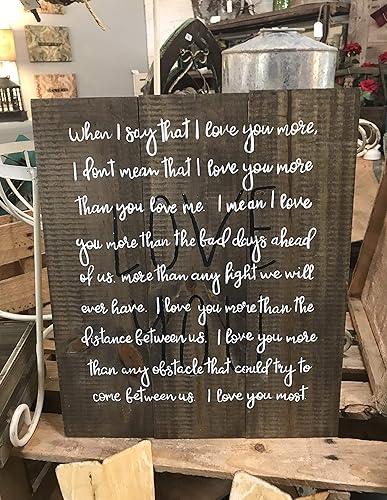 When I say that I love you more,
I don't mean that I love you more
than you love me. I mean I love
you more than the bad days ahead
of us, more than any fight we will
ever have. I love you more than the
distance between us. I love you more
than any obstacle that could try to
come between us. I love you most.
LOVE